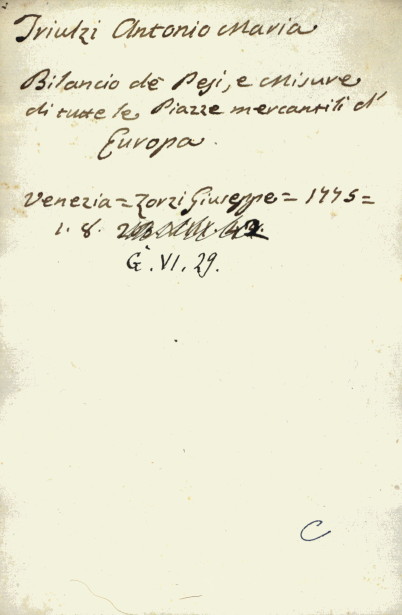 Triulzi Antonio Maria
Bilancio de Pesi, e Misure
di tutte le Piazze mercantili d'
Europa.
Venezia = Zorzi Giuseppe = 1775 =
1. 8.
G. VI. 29.
C